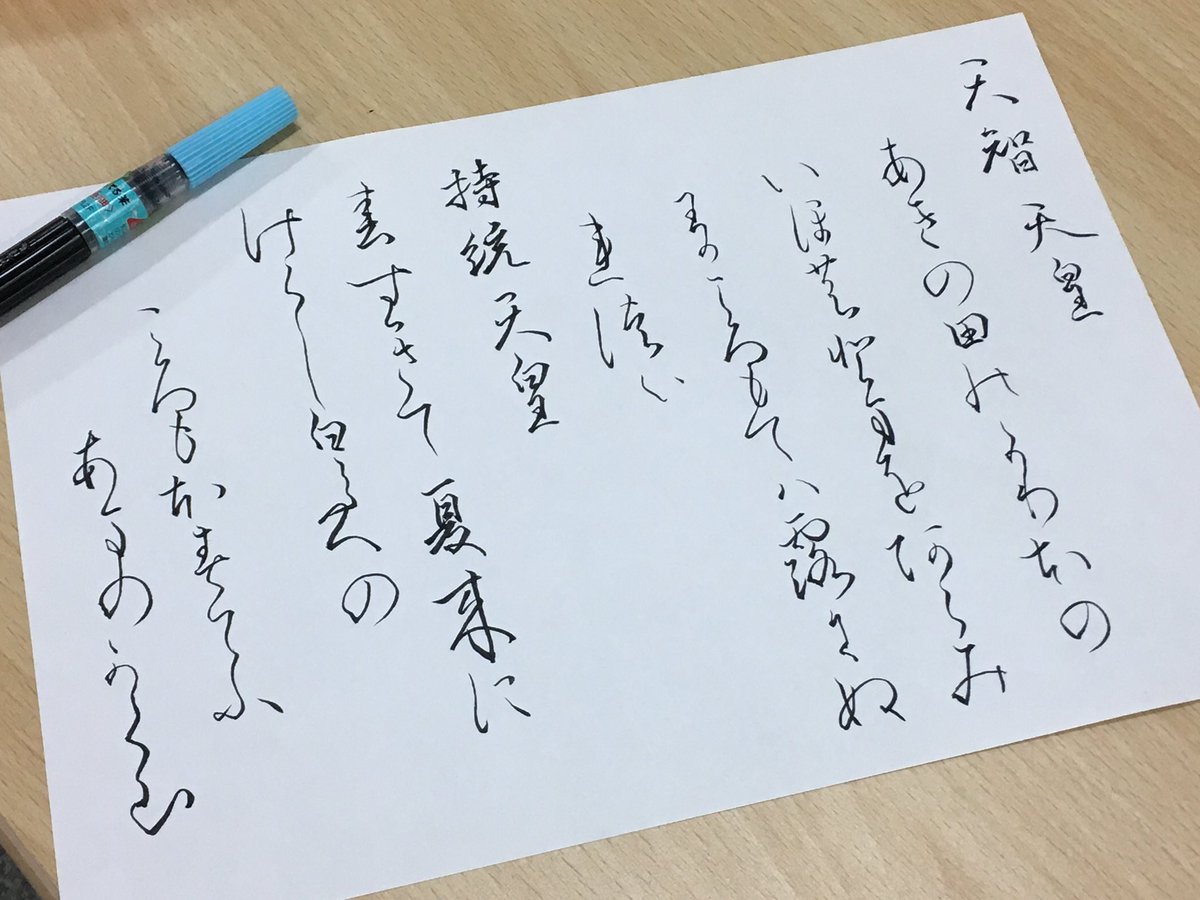 天智天皇
あきの田のかりほの
いほのとまをあらみ
わかころもてハ露にぬ
れつゝ
持統天皇
春すきて夏来に
けらし白たへの
ころもほすてふ
あまのかく山